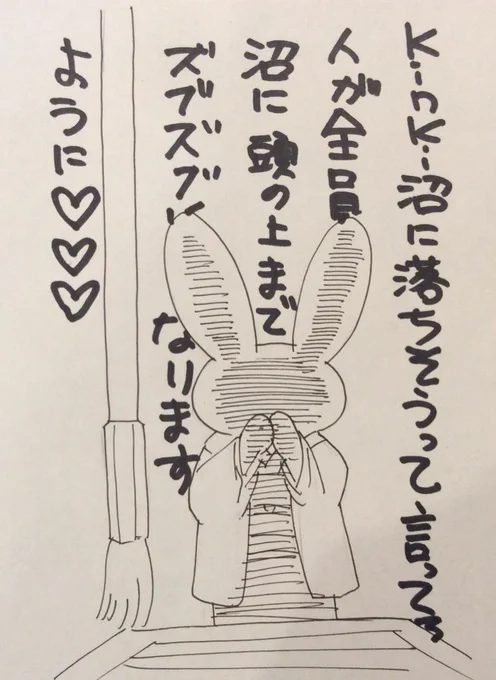 KinKi沼に落ちそうって言ってる
人が全員
沼に 頭の上まで
ズブズブに
なります
ように♡♡♡